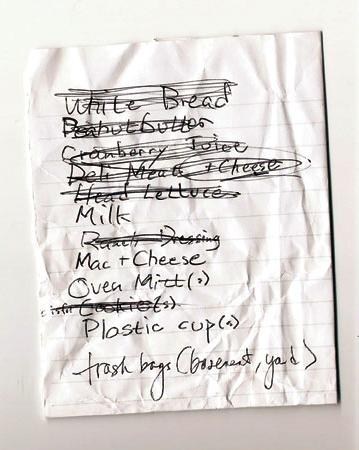 White Bread
Peanut butter
Cranberry Juice
Deli Meats + Cheese
Head Lettuce
Milk
Ranch Dressing
Mac + Cheese
Oven Mitt(s)
Cookie(s)
Plastic cup(s)
trash bags (basement, yard)